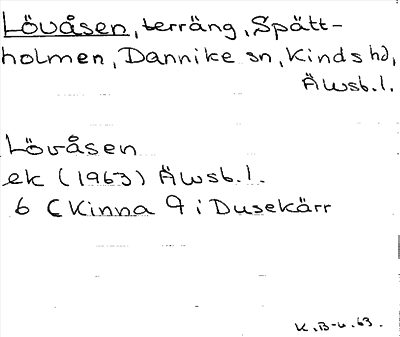 Lövåsen, terräng, Spätt-
holmen, Dannike sn, Kinds hd,
Äwsb.l.
Lövåsen
ek (1963) Äwsb.l.
6 C Kinna 9 i Dusekärr
K.B-u. 63.